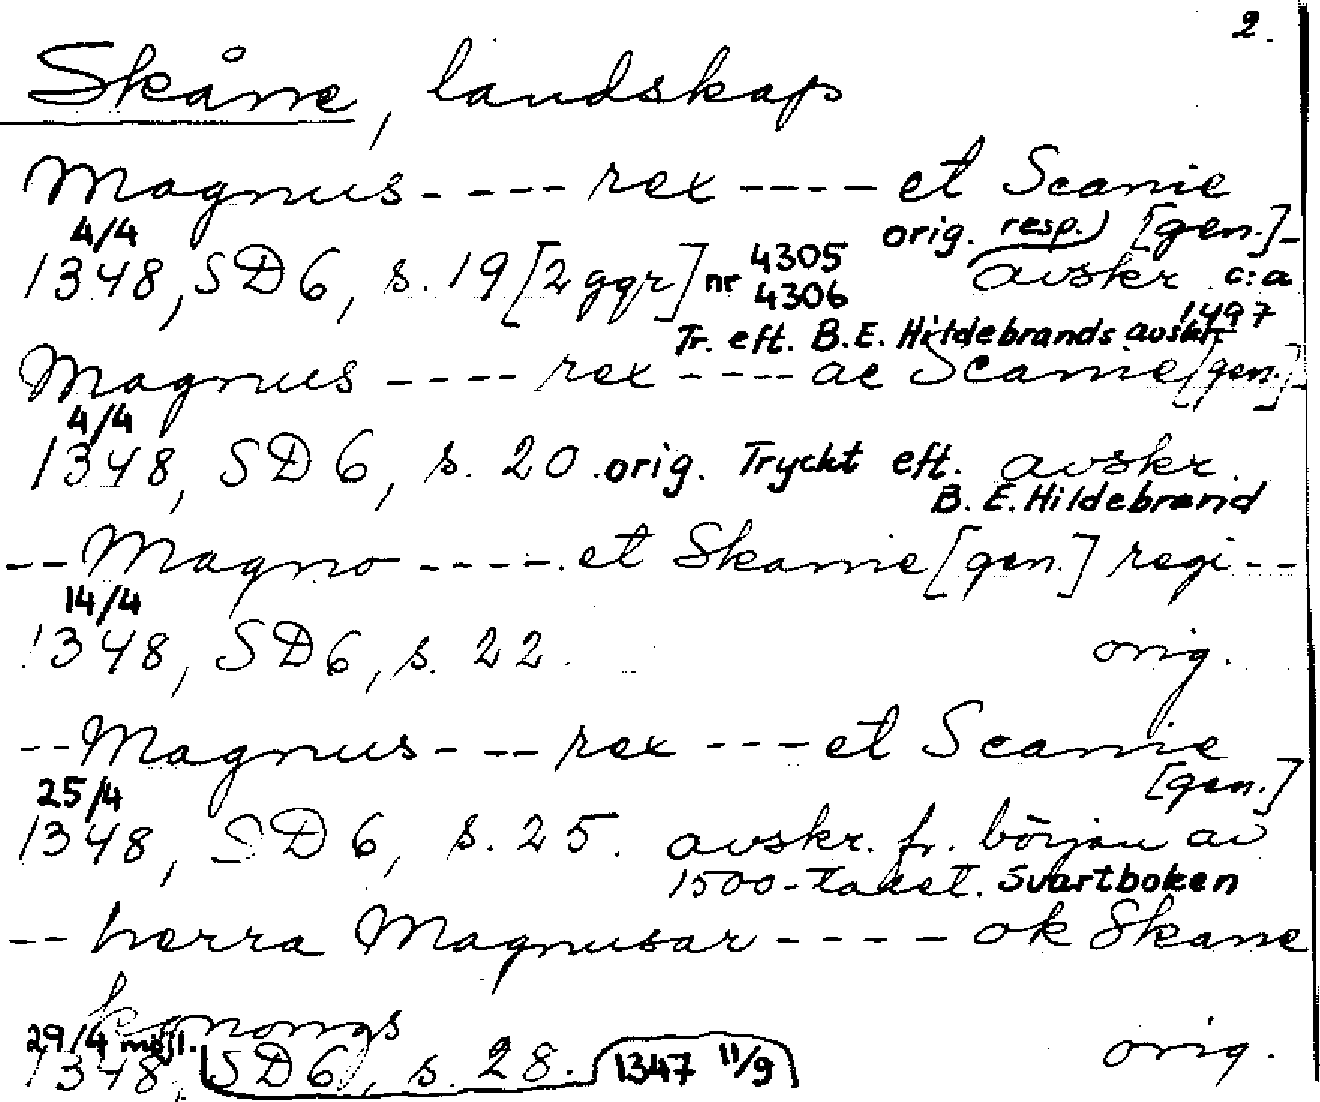 2.
Skåne, landskap
Magnus - - - - rex - - - - et Scanie
4/4 orig. resp. [gen.]-
1348, SD6, s. 19 [2 ggr] nr 4305 4306 avskr c:a 1497
Tr. eft. B.E. Hildebrands avskr.
Magnus - - - - rex - - - - ac Scanie [gen.]-
4/4
1348, SD6, s. 20. orig. Tryckt eft. avskr.
B. E. Hildebrand
-- Magno - - - - . et Skanie [gen.] regi - -
14/4
1348, SD6, s. 22. orig.
-- Magnus - - - rex - - - et Scanie
25/4 [gen.]
1348, SD6, s. 25. avskr. fr. början av
1500-talet. Svartboken
-- herra Magnusar - - - - ok Skane
konongs
29/4 möjl.
1348, SD6, s. 28. 1347 11/9 orig.